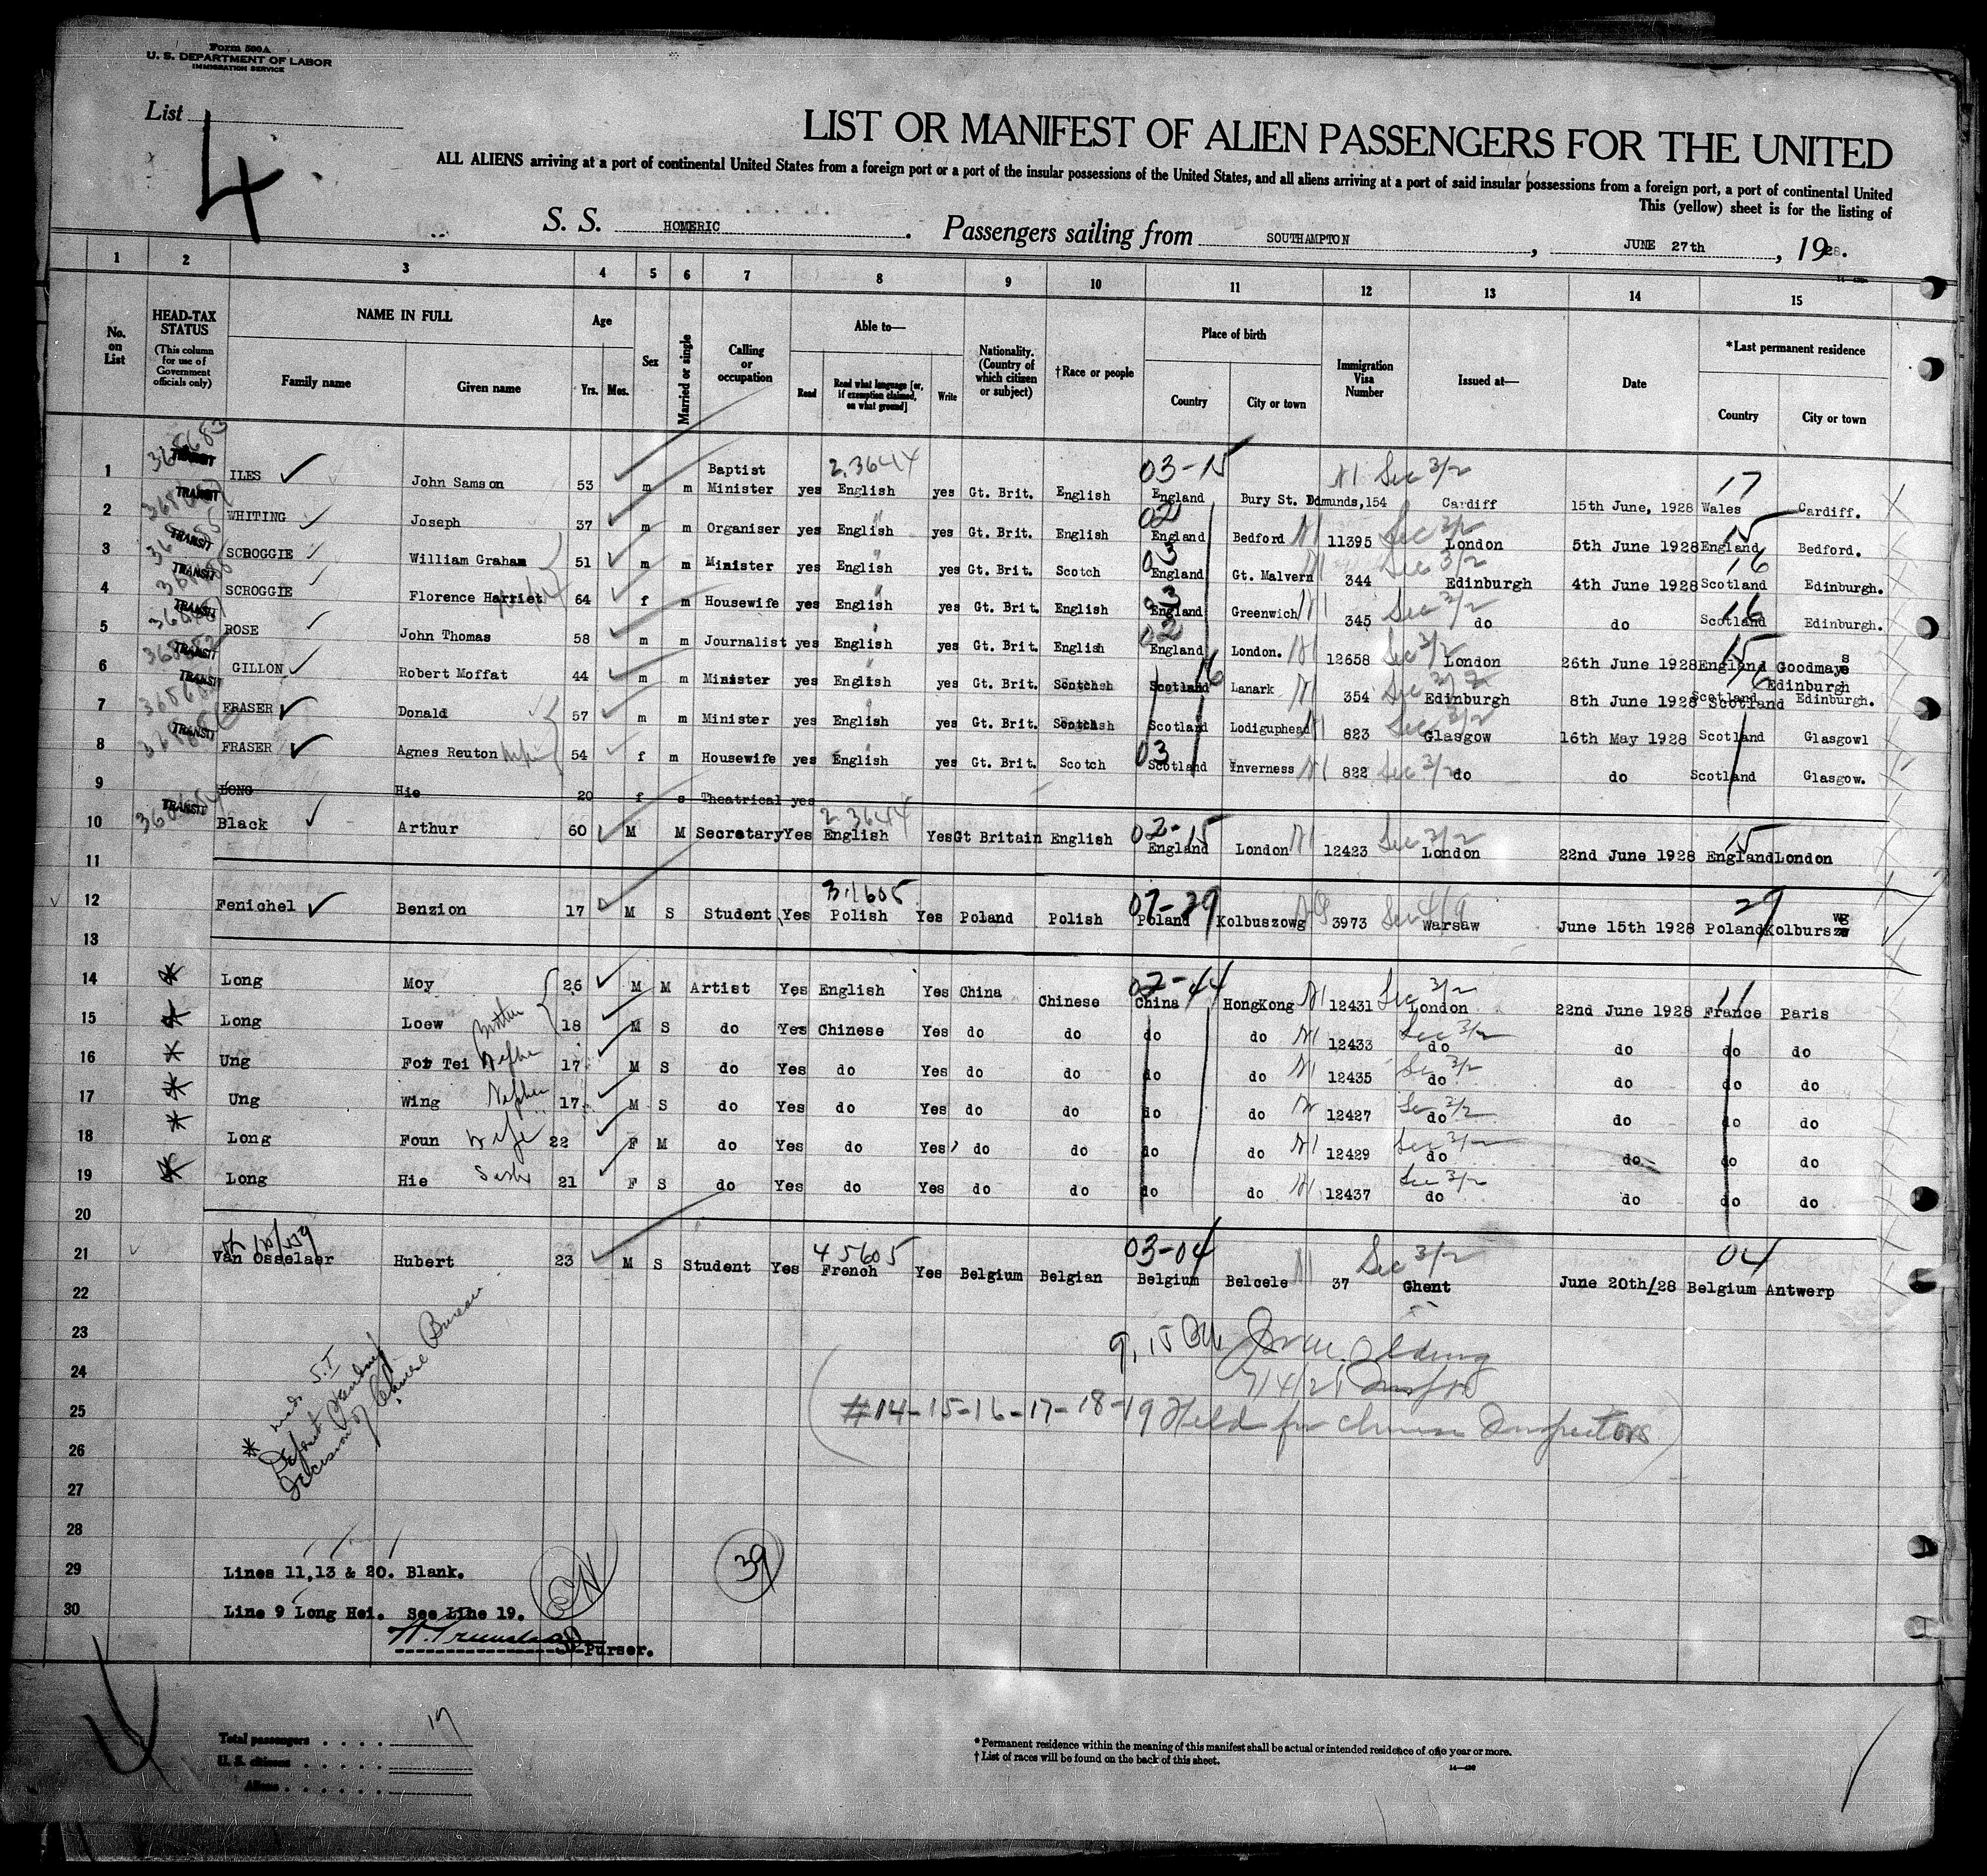 Form 500A
U. S. DEPARTMENT OF LABOR
IMMIGRATION SERVICE
List
4
LIST OR MANIFEST OF ALIEN PASSENGERS FOR THE UNITED
ALL ALIENS arriving at a port of continental United States from a foreign port or a port of the insular possessions of the United States, and all aliens arriving at a port of said insular possessions from a foreign port, a port of continental United
This (yellow) sheet is for the listing of
S. S. HOMERIC. Passengers sailing from SOUTHAMPTON, JUNE 27th, 1928.
1 2 3 4 5 6 7 8 9 10 11 12 13 14 15
No. on List
HEAD-TAX STATUS
(This column for use of Government officials only)
NAME IN FULL
Family name Given name
Age
Yrs. Mos.
Sex
Married or single
Calling or occupation
Able to—
Read Read what language [or, if exemption claimed, on what ground] Write
Nationality. (Country of which citizen or subject)
†Race or people
Place of birth
Country City or town
Immigration Visa Number
Issued at—
Date
*Last permanent residence
Country City or town
1 TRANSIT ILES John Samson 53 m m Baptist Minister yes 2.3644 English yes Gt. Brit. English 03-15 England Bury St. Edmunds, 154 Sec 3/2 Cardiff 15th June, 1928 17 Wales Cardiff.
2 TRANSIT WHITING Joseph 37 m m Organiser yes English yes Gt. Brit. English 02 England Bedford 11395 Sec 3/2 London 5th June 1928 15 England Bedford.
3 TRANSIT SCROGGIE William Graham 51 m m Minister yes English yes Gt. Brit. Scotch 03 England Gt. Malvern 344 Sec 3/2 Edinburgh 4th June 1928 16 Scotland Edinburgh.
4 TRANSIT SCROGGIE Florence Harriet 64 f m Housewife yes English yes Gt. Brit. English 03 England Greenwich 345 Sec 3/2 do do 16 Scotland Edinburgh.
5 TRANSIT ROSE John Thomas 58 m m Journalist yes English yes Gt. Brit. English 02 England London. 12658 Sec 3/2 London 26th June 1928 15 England Goodmays
6 TRANSIT GILLON Robert Moffat 44 m m Minister yes English yes Gt. Brit. Scotch 16 Scotland Lanark 354 Sec 3/2 Edinburgh 8th June 1928 16 Scotland Edinburgh
Scotland Edinburgh.
7 TRANSIT FRASER Donald 57 m m Minister yes English yes Gt. Brit. Scotch Scotland Lodiguphead 823 Sec 3/2 Glasgow 16th May 1928 Scotland Glasgowl
8 TRANSIT FRASER Agnes Reuton wife 54 f m Housewife yes English yes Gt. Brit. Scotch 03 Scotland Inverness 822 Sec 3/2 do do Scotland Glasgow.
9 LONG Hie 20 f s Theatrical yes
10 TRANSIT Black Arthur 60 M M Secretary Yes 2.3644 English Yes Gt Britain English 02-15 England London 12423 Sec 3/2 London 22nd June 1928 15 England London
11
12 Fenichel Benzion 17 M S Student Yes 31605 Polish Yes Poland Polish 07-29 Poland Kolbuszowg 3973 Sec 4/9 Warsaw June 15th 1928 29 Poland Kolbursz
13
14 * Long Moy 26 M M Artist Yes English Yes China Chinese 02-44 China HongKong 12431 Sec 3/2 London 22nd June 1928 11 France Paris
15 * Long Loew brother 18 M S do Yes Chinese Yes do do do do 12433 Sec 3/2 do do do do
16 * Ung Foy Tei Nephew 17 M S do Yes do Yes do do do do 12435 Sec 3/2 do do do do
17 * Ung Wing Nephew 17 M S do Yes do Yes do do do do 12427 Sec 3/2 do do do do
18 * Long Foun Wife 22 F M do Yes do Yes do do do do 12429 Sec 3/2 do do do do
19 * Long Hie Sister 21 F S do Yes do Yes do do do do 12437 Sec 3/2 do do do do
20
21 Van Osselaer Hubert 23 M S Student Yes 45605 French Yes Belgium Belgian 03-04 Belgium Belcele 37 Sec 3/2 Ghent June 20th/28 04 Belgium Antwerp
22
23
24
25 (#14-15-16-17-18-19 Held for Chinese Inspectors)
26 * S.I
decision of Chinese Bureau
27
28
29 Lines 11,13 & 20. Blank.
39
30 Line 9 Long Hei. See Line 19.
Purser.
Total passengers 19
U. S. citizens
Aliens
* Permanent residence within the meaning of this manifest shall be actual or intended residence of one year or more.
† List of races will be found on the back of this sheet.